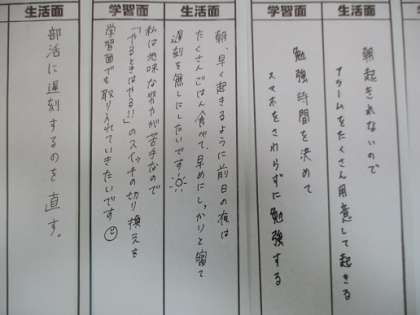 生活面
朝起きれないので
アラームをたくさん用意して起きる
学習面
勉強時間を決めて
スマホをさわらずに勉強する
生活面
朝、早く起きるように前日の夜は
たくさんごはん食べて、早めにしっかりと寝て
遅刻を無しにしたいです
学習面
私は地味な努力が苦手なので
「やるときはやる!!」のスイッチの切り換えを
学習面でも取り入れていきたいです
生活面
部活に遅刻するのを直す。